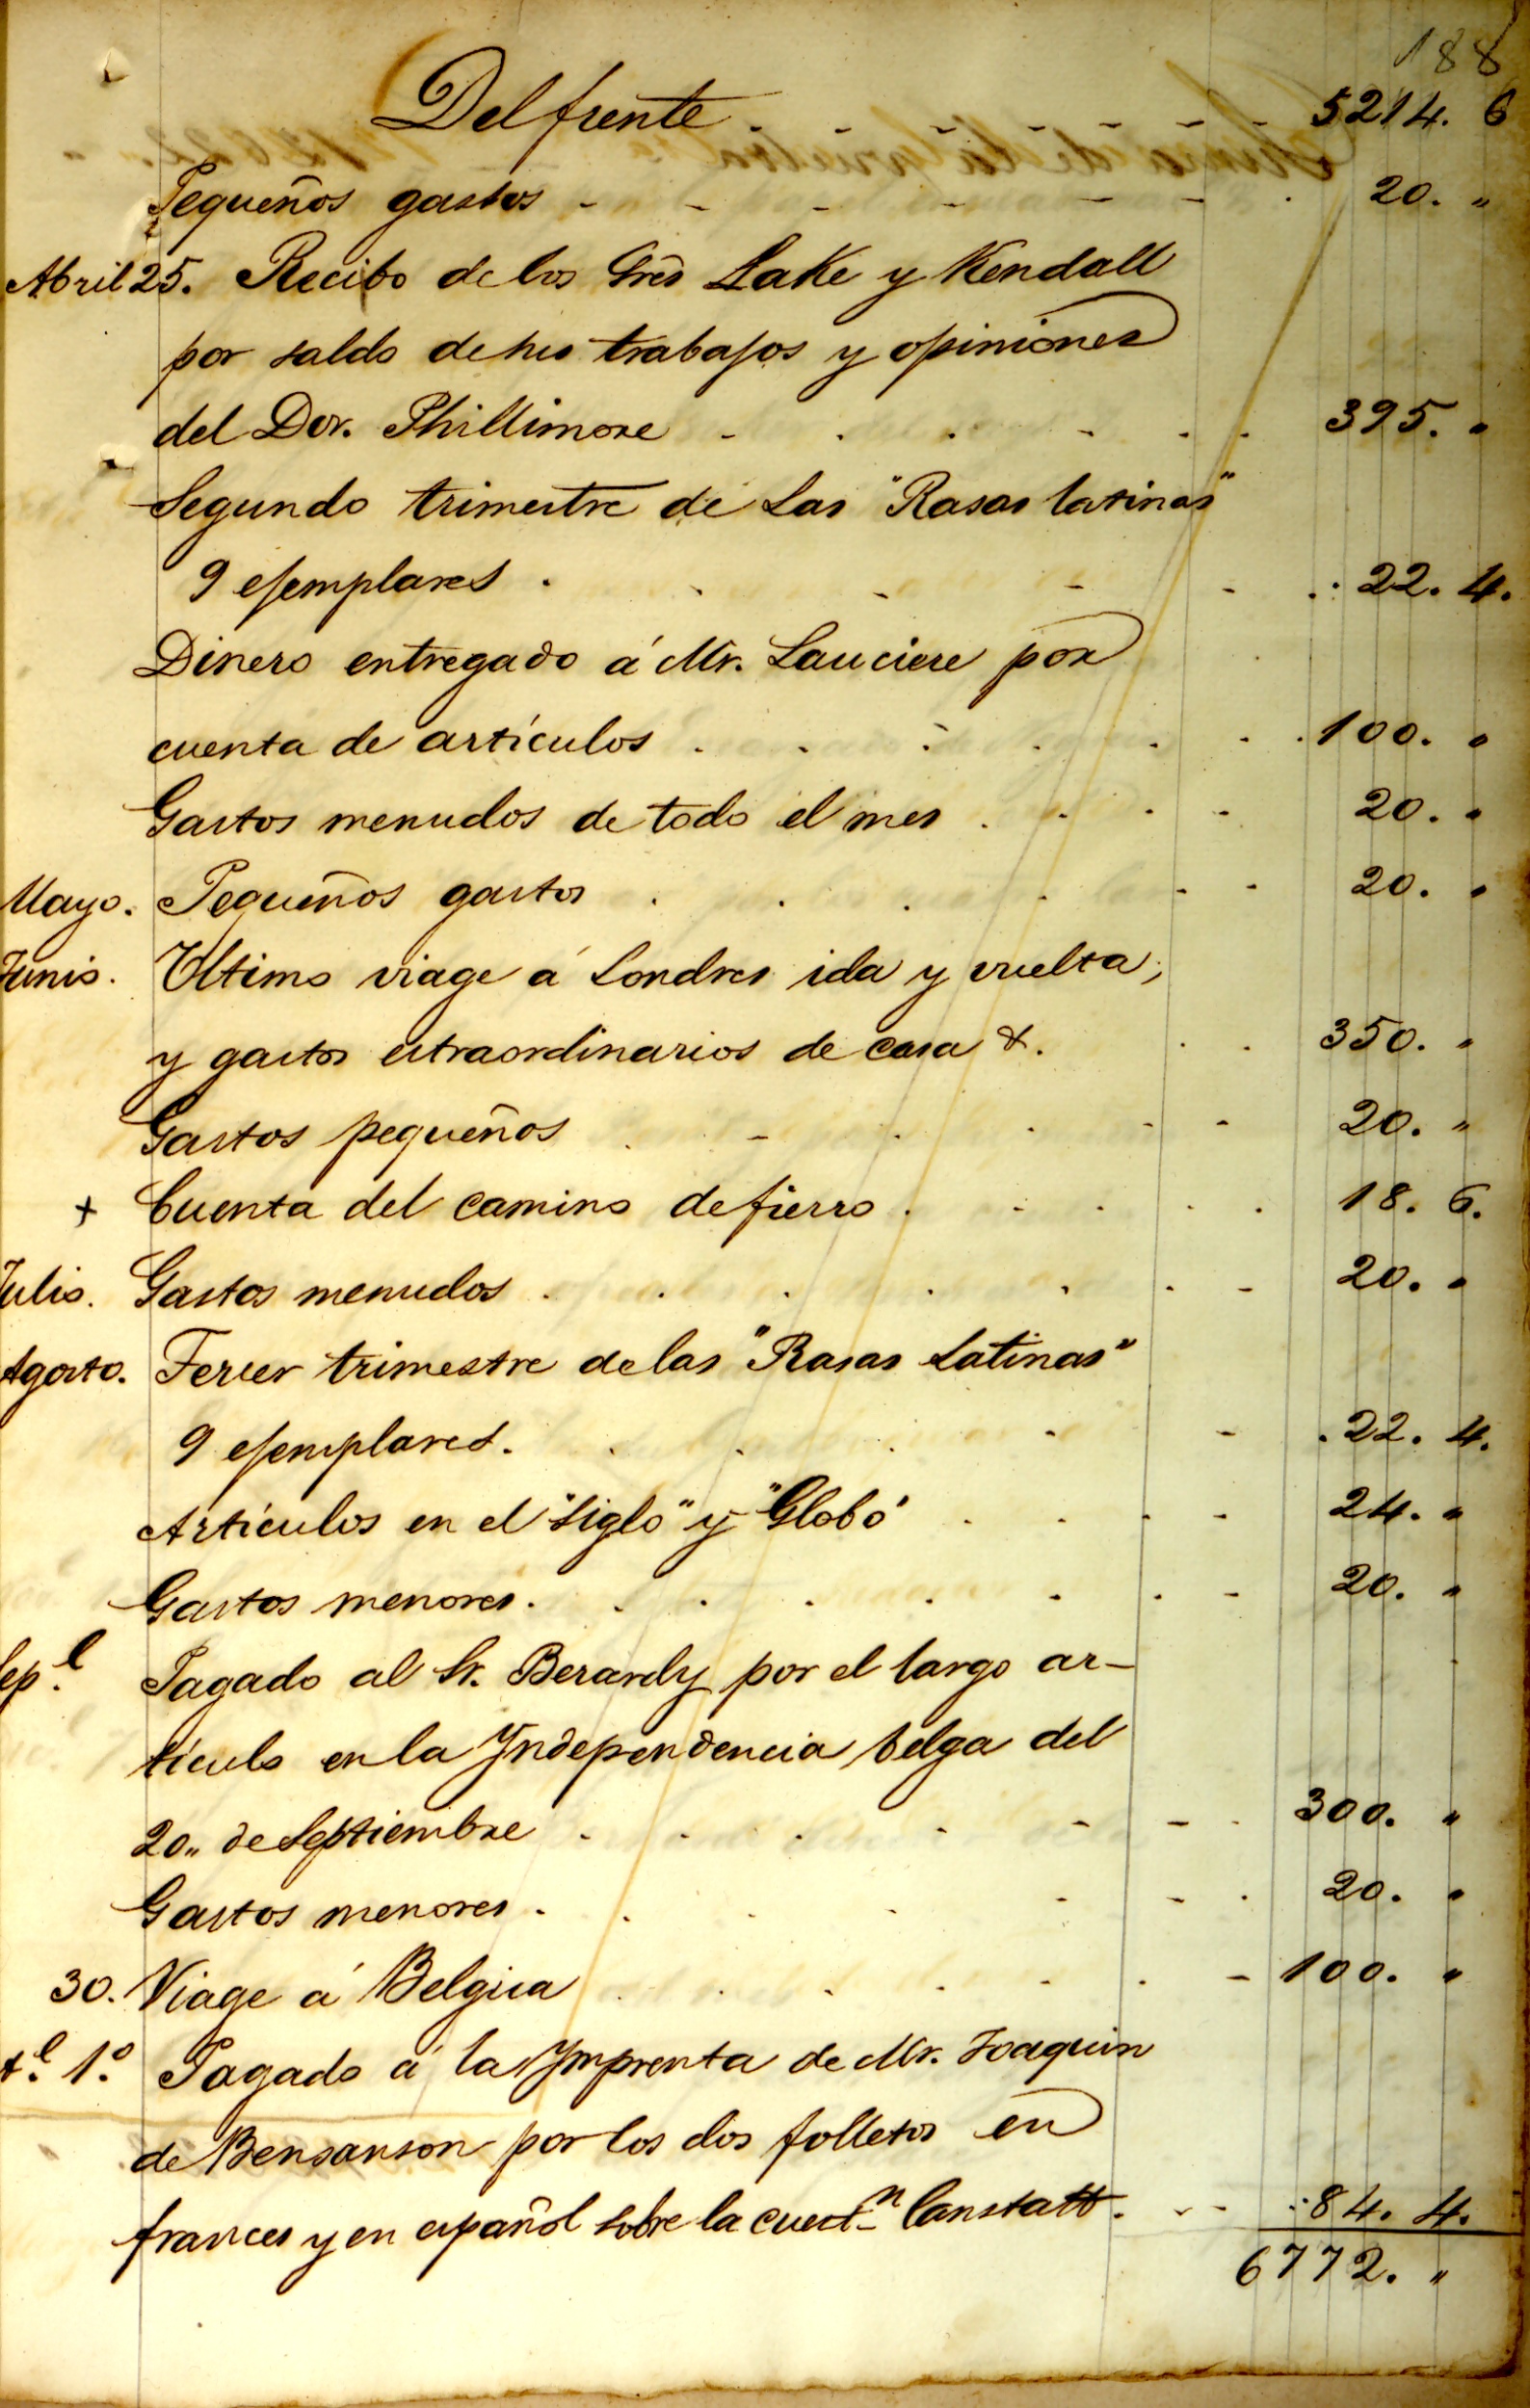 188
Del frente - - - - - 5214. 6
Pequeños gastos - - - - - - . 20. "
Abril 25. Recibo de los Sres Lake y Kendall
por saldo de sus trabajos y opiniones
del Dor. Phillimore - . . - . . 395. "
Segundo trimestre de las "Rasas latinas"
9 ejemplares . - - - - . 22. 4.
Dinero entregado á Mr. Lauciere por
cuenta de artículos . . . . . . . 100. "
Gastos menudos de todo el mes . - . - 20. "
Mayo. Pequeños gastos . . . . - - 20. "
Junio. Ultimo viage á Londres ida y vuelta;
y gastos estraordinarios de casa &. . . 350. "
Gastos pequeños . - . . - - 20. "
+ Cuenta del camino de fierro . . . . . 18. 6.
Julio. Gastos menudos . . . . . . - 20. "
Agosto. Tercer trimestre de las "Rasas Latinas"
9 ejemplares. . . . . - . 22. 4.
Artículos en el "Siglo" y "Globo" . . . - 24. "
Gastos menores. . . . . . . - 20. "
Sep.e Pagado al Sr. Berardy por el largo ar-
tículo en la Yndependencia belga del
20,, de Septiembre . . . . - - . 300. "
Gastos menores . . . . - - . 20. "
30. Viage á Belgica . . . . . . - 100. "
t.e 1.º Pagado á la Ymprenta de Mr. Joaquin
de Bensanson por los dos folletos en
frances y en español sobre la cuest.n Canstatt. - - 84. 4.
6772. "